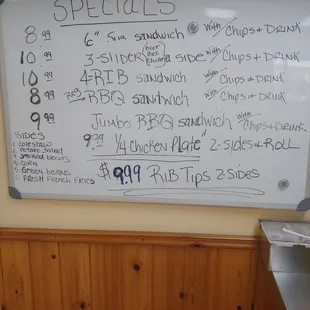 SPECIALS
8.99 6" Sandwich with Chips & Drink
10.99 3-Slider Beef Pork Chicken side with Chips & Drink
10.99 4-RIB sandwich with Chips & Drink
8.99 Reg BBQ Sandwich with Chips & Drink
9.99 Jumbo BBQ sandwich with Chips & Drink
9.99 1/4 Chicken Plate" 2-Sides & Roll
$9.99 Rib Tips 2-Sides
SIDES
1. Coleslaw
2. Potato Salad
3. Smoked Beans
4. Corn
5. Green Beans
FRESH French Fries